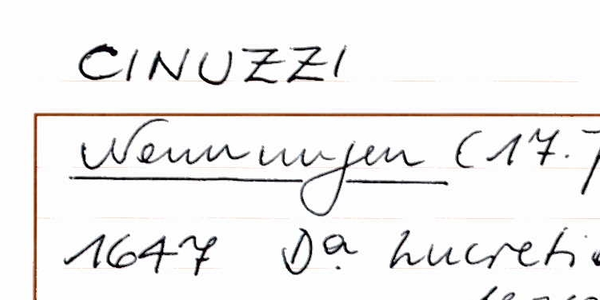 CINUZZI
Nennungen (17.
1647 Da. Lucreti